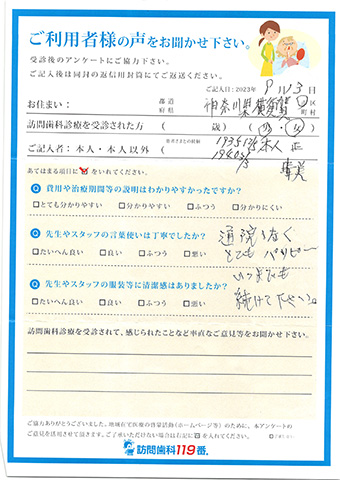 ご利用者様の声をお聞かせ下さい。
受診後のアンケートにご協力下さい。
ご記入後は同封の返信用封筒にてご返送ください。
ご記入日：2023年 9月13日
お住まい： 都道府県 神奈川県横須賀 市区町村
訪問歯科診療を受診された方 ( 歳) ( 男 ・ 女 )
ご記入者：本人・本人以外 ( 患者さまとの続柄 本人
あてはまる項目に☑をいれてください。
Q 費用や治療期間等の説明はわかりやすかったですか？
□とても分かりやすい □分かりやすい □ふつう □分かりにくい
Q 先生やスタッフの言葉使いは丁寧でしたか？
□たいへん良い □良い □ふつう □悪い
Q 先生やスタッフの服装等に清潔感はありましたか？
□たいへん良い □良い □ふつう □悪い
通院もなく
とても
いつまでも
続けて下さい。
訪問歯科診療を受診されて、感じられたことなど率直なご意見等をお聞かせ下さい。
ご協力ありがとうございました。地域在宅医療の普及活動(ホームページ等)のために、本アンケートの
ご意見を活用させて頂きます。ご了承いただけない場合は右記に☑を入れてください。
訪問歯科119番。